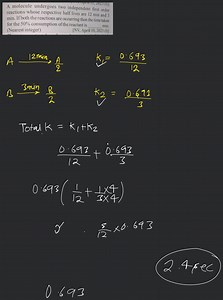 A molecule undergoes two independent first order
reactions whose respective half lives are 12 min and 3
min. If both the reactions are occurring then the time taken
for the 50% consumption of the reactant is ____ min.
(Nearest integer)
A 12min → A/2 k₁ = 0.693/12
B 3min → B/2 k₂ = 0.693/3
Total k = k₁+k₂
0.693/12 + 0.693/3
0.693 (1/12 + 1×4/3×4)
5/12 × 0.693
2.4 sec
0.693